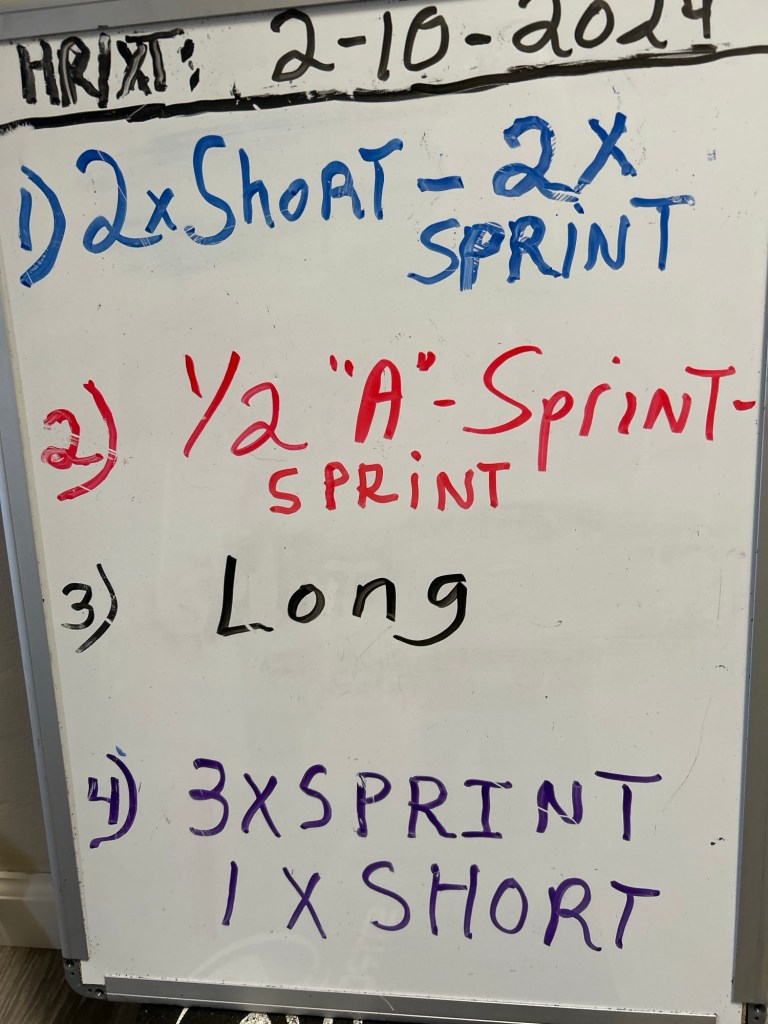 HRIXT: 2-10-2024
1) 2x ShoRT - 2X
SPRiNT
2) 1/2 "A" - SpriNT-
SPRiNT
3) Long
4) 3XSPRINT
1 X SHORT